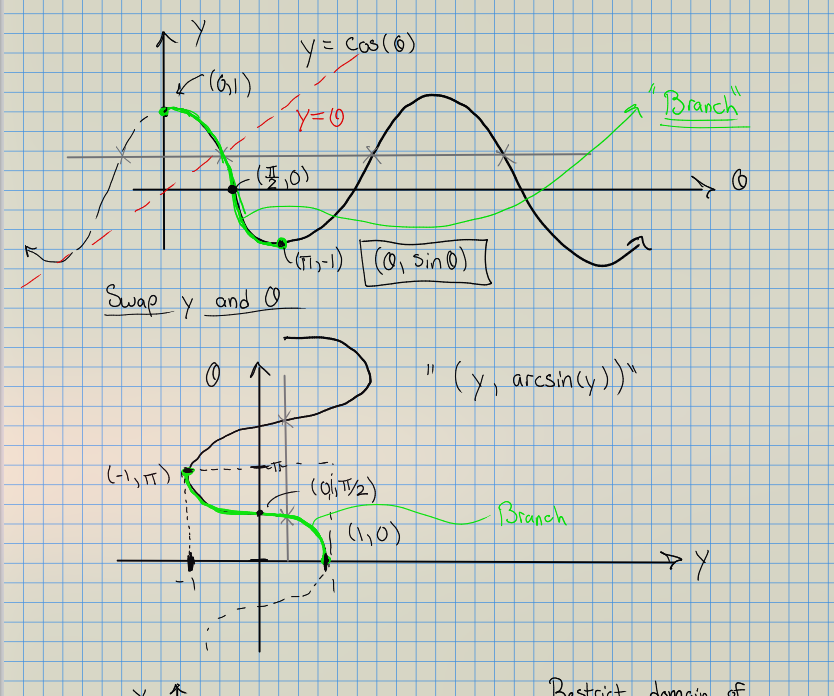 y
y = cos(θ)
(0,1)
"Branch"
y=θ
(π/2, 0)
θ
(π,-1)
(θ, sinθ)
Swap y and θ
θ
"(y, arcsin(y))"
(-1,π)
π
(0,π/2)
Branch
(1,0)
y
-1
1
y
Restrict domain of